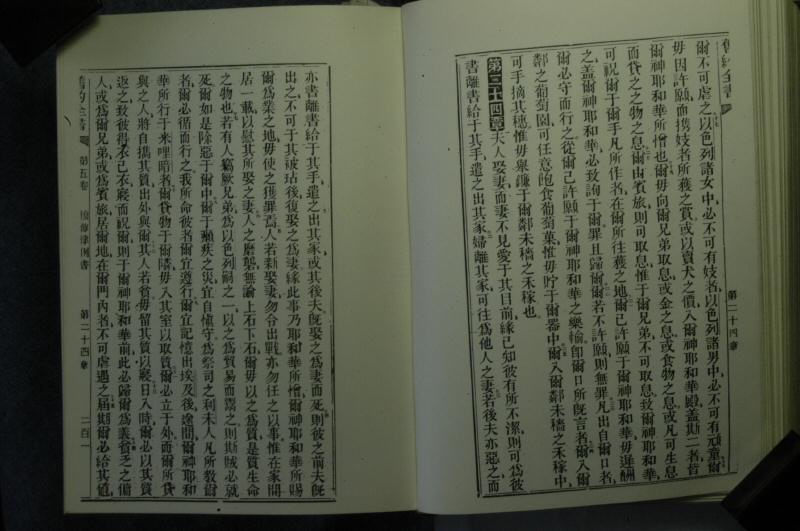 舊約全書
第二十四章
爾不可虐之以色列諸女中必不可有妓者以色列諸男中必不可有頑童爾
毋因許願而携妓者所獲之賞或以賣犬之價入爾神耶和華殿蓋斯二者皆
爾神耶和華所憎也爾毋向爾兄弟取息或金之息或食物之息或凡可生息
而貸之之物之息爾由賓旅則可取息惟于爾兄弟不可取息致爾神耶和華
可祝爾于爾手凡所作者在爾所往獲之地爾已許願于爾神耶和華毋遲酬
之蓋爾神耶和華必致詢于爾罪且歸爾爾若不許願則無罪凡出自爾口者
爾必守而行之從爾已許願于爾神耶和華之樂輸卽爾口所旣言者爾入爾
鄰之葡萄園可任意飽食葡萄菓惟毋貯于爾器中爾入爾鄰未穡之禾稼中
可手摘其穗惟毋舉鐮于爾鄰未穡之禾稼也
第二十四章夫人娶妻而妻不見愛于其目前緣已知彼有所不潔則可爲彼
書離書給于其手遣之出其家婦離其家可往爲他人之妻若後夫亦惡之而
亦書離書給于其手遣之出其家或其後夫旣娶之爲妻而死則彼之前夫旣
出之不可于其被玷後復娶之爲妻緣此事乃耶和華所憎爾神耶和華所賜
爾爲業之地毋使之獲罪焉人若新娶妻勿令出戰亦勿任之以事惟在家閒
居一載以慰其所娶之妻人之磨磐無論上石下石爾毋以之爲質是質生命
之物也若有人竊厥兄弟爲以色列嗣之一以之爲貿易而鬻之則斯賊必就
死爾如是除惡于爾中爾于癩疾之災宜自愼守爲祭司之利未人凡所敎爾
者爾必循而行之我所命彼者爾宜遵行爾宜記憶出埃及後途間爾神耶和
華所行于米哩暗者爾貸物于爾隣毋入其室以取質爾必立于外而爾所貸
與之人將自携其質出外與爾其人若貧毋留其質以寢日入時爾必以其質
返之致彼得衣己衣寢而祝爾則于爾神耶和華前此必歸爾爲義貧乏之傭
人或爲爾兄弟或爲賓旅居爾地在爾門內者不可虐遇之屆期爾必給其値
舊約全書
第五卷
復傳律例書
第二十四章
二百一